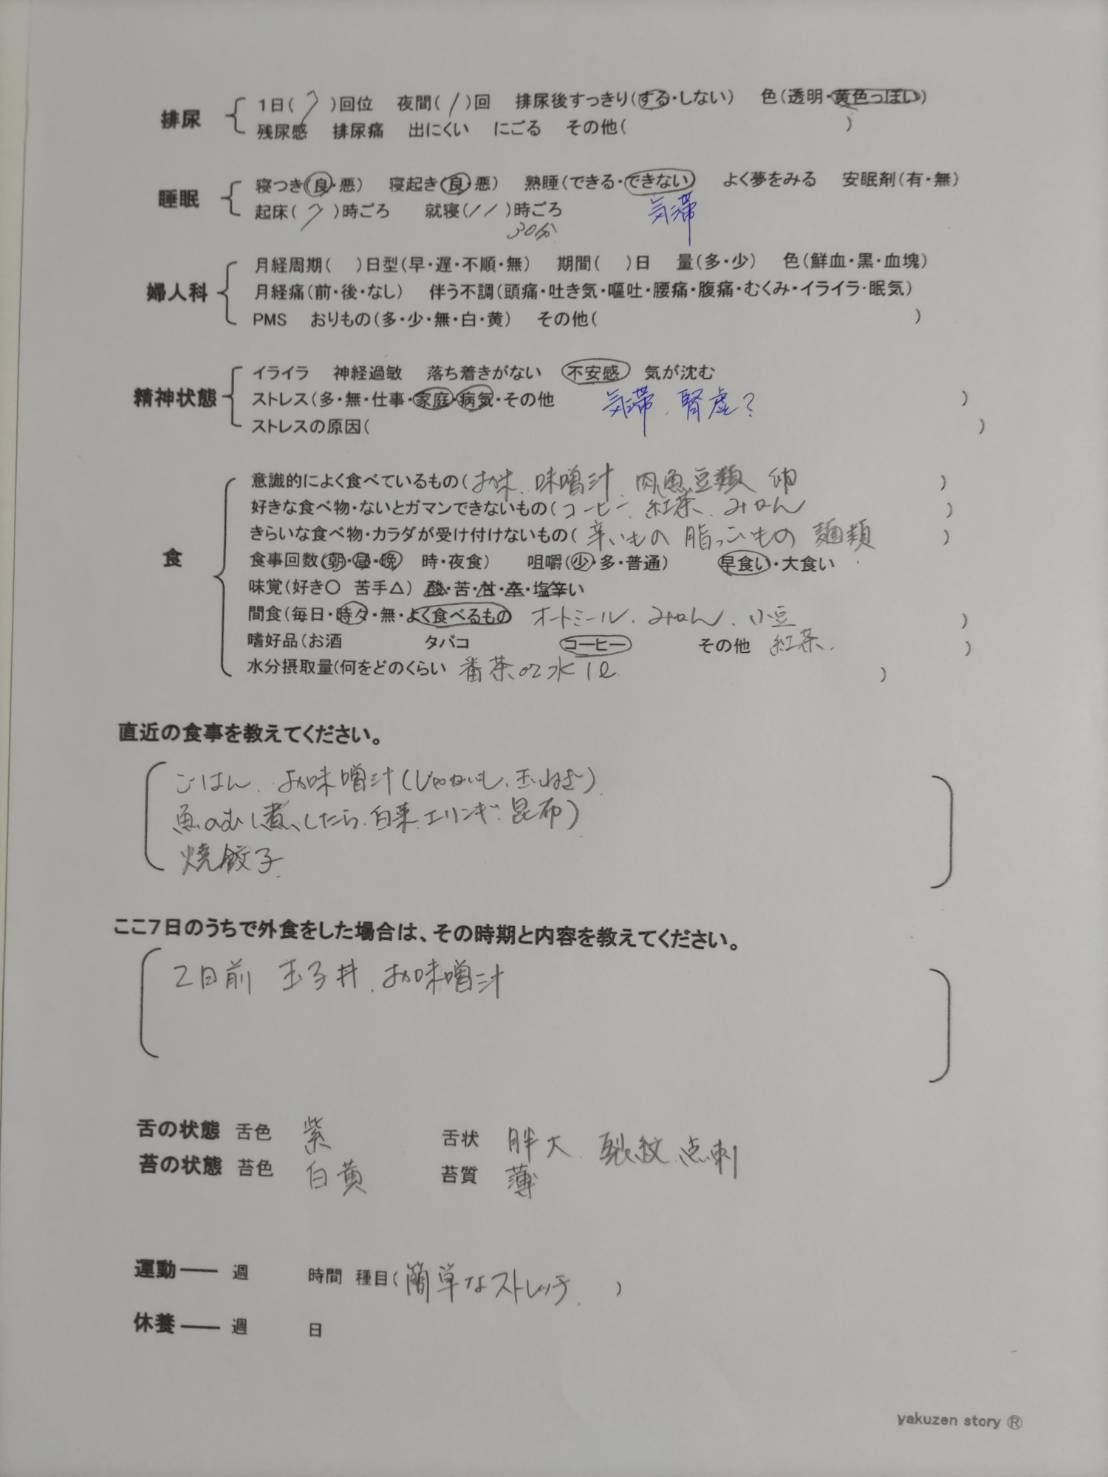 排尿 1日(7)回位 夜間(1)回 排尿後すっきり(する・しない) 色(透明・黄色っぽい)
残尿感 排尿痛 出にくい にごる その他( )
睡眠 寝つき(良・悪) 寝起き(良・悪) 熟睡(できる・できない) よく夢をみる 安眠剤(有・無)
起床(7)時ごろ 就寝(11)時ごろ 気滞
30分
婦人科 月経周期( )日型(早・遅・不順・無) 期間( )日 量(多・少) 色(鮮血・黒・血塊)
月経痛(前・後・なし) 伴う不調(頭痛・吐き気・嘔吐・腰痛・腹痛・むくみ・イライラ・眠気)
PMS おりもの(多・少・無・白・黄) その他( )
精神状態 イライラ 神経過敏 落ち着きがない 不安感 気が沈む
ストレス(多・無・仕事・家庭・病気・その他 気滞、腎虚? )
ストレスの原因( )
食 意識的によく食べているもの(お米、味噌汁、肉魚豆類 卵 )
好きな食べ物・ないとガマンできないもの(コーヒー、紅茶、みかん )
きらいな食べ物・カラダが受け付けないもの(辛いもの 脂っこいもの 麺類 )
食事回数(朝・昼・晩 時・夜食) 咀嚼(少・多・普通) 早食い・大食い
味覚(好き〇 苦手△) 酸・苦・甘・辛・塩辛い
間食(毎日・時々・無・よく食べるもの オートミール、みかん、小豆 )
嗜好品(お酒 タバコ コーヒー その他 紅茶、 )
水分摂取量(何をどのくらい 番茶or水 1ℓ )
直近の食事を教えてください。
ごはん、お味噌汁(じゃがいも、玉ねぎ)
魚のむし煮(たら、白菜、エリンギ、昆布)
焼餃子
ここ7日のうちで外食をした場合は、その時期と内容を教えてください。
2日前 玉子丼、お味噌汁
舌の状態 舌色 紫 舌状 胖大 裂紋 点刺
苔の状態 苔色 白黄 苔質 薄
運動―― 週 時間 種目(簡単なストレッチ )
休養―― 週 日
yakuzen story ®